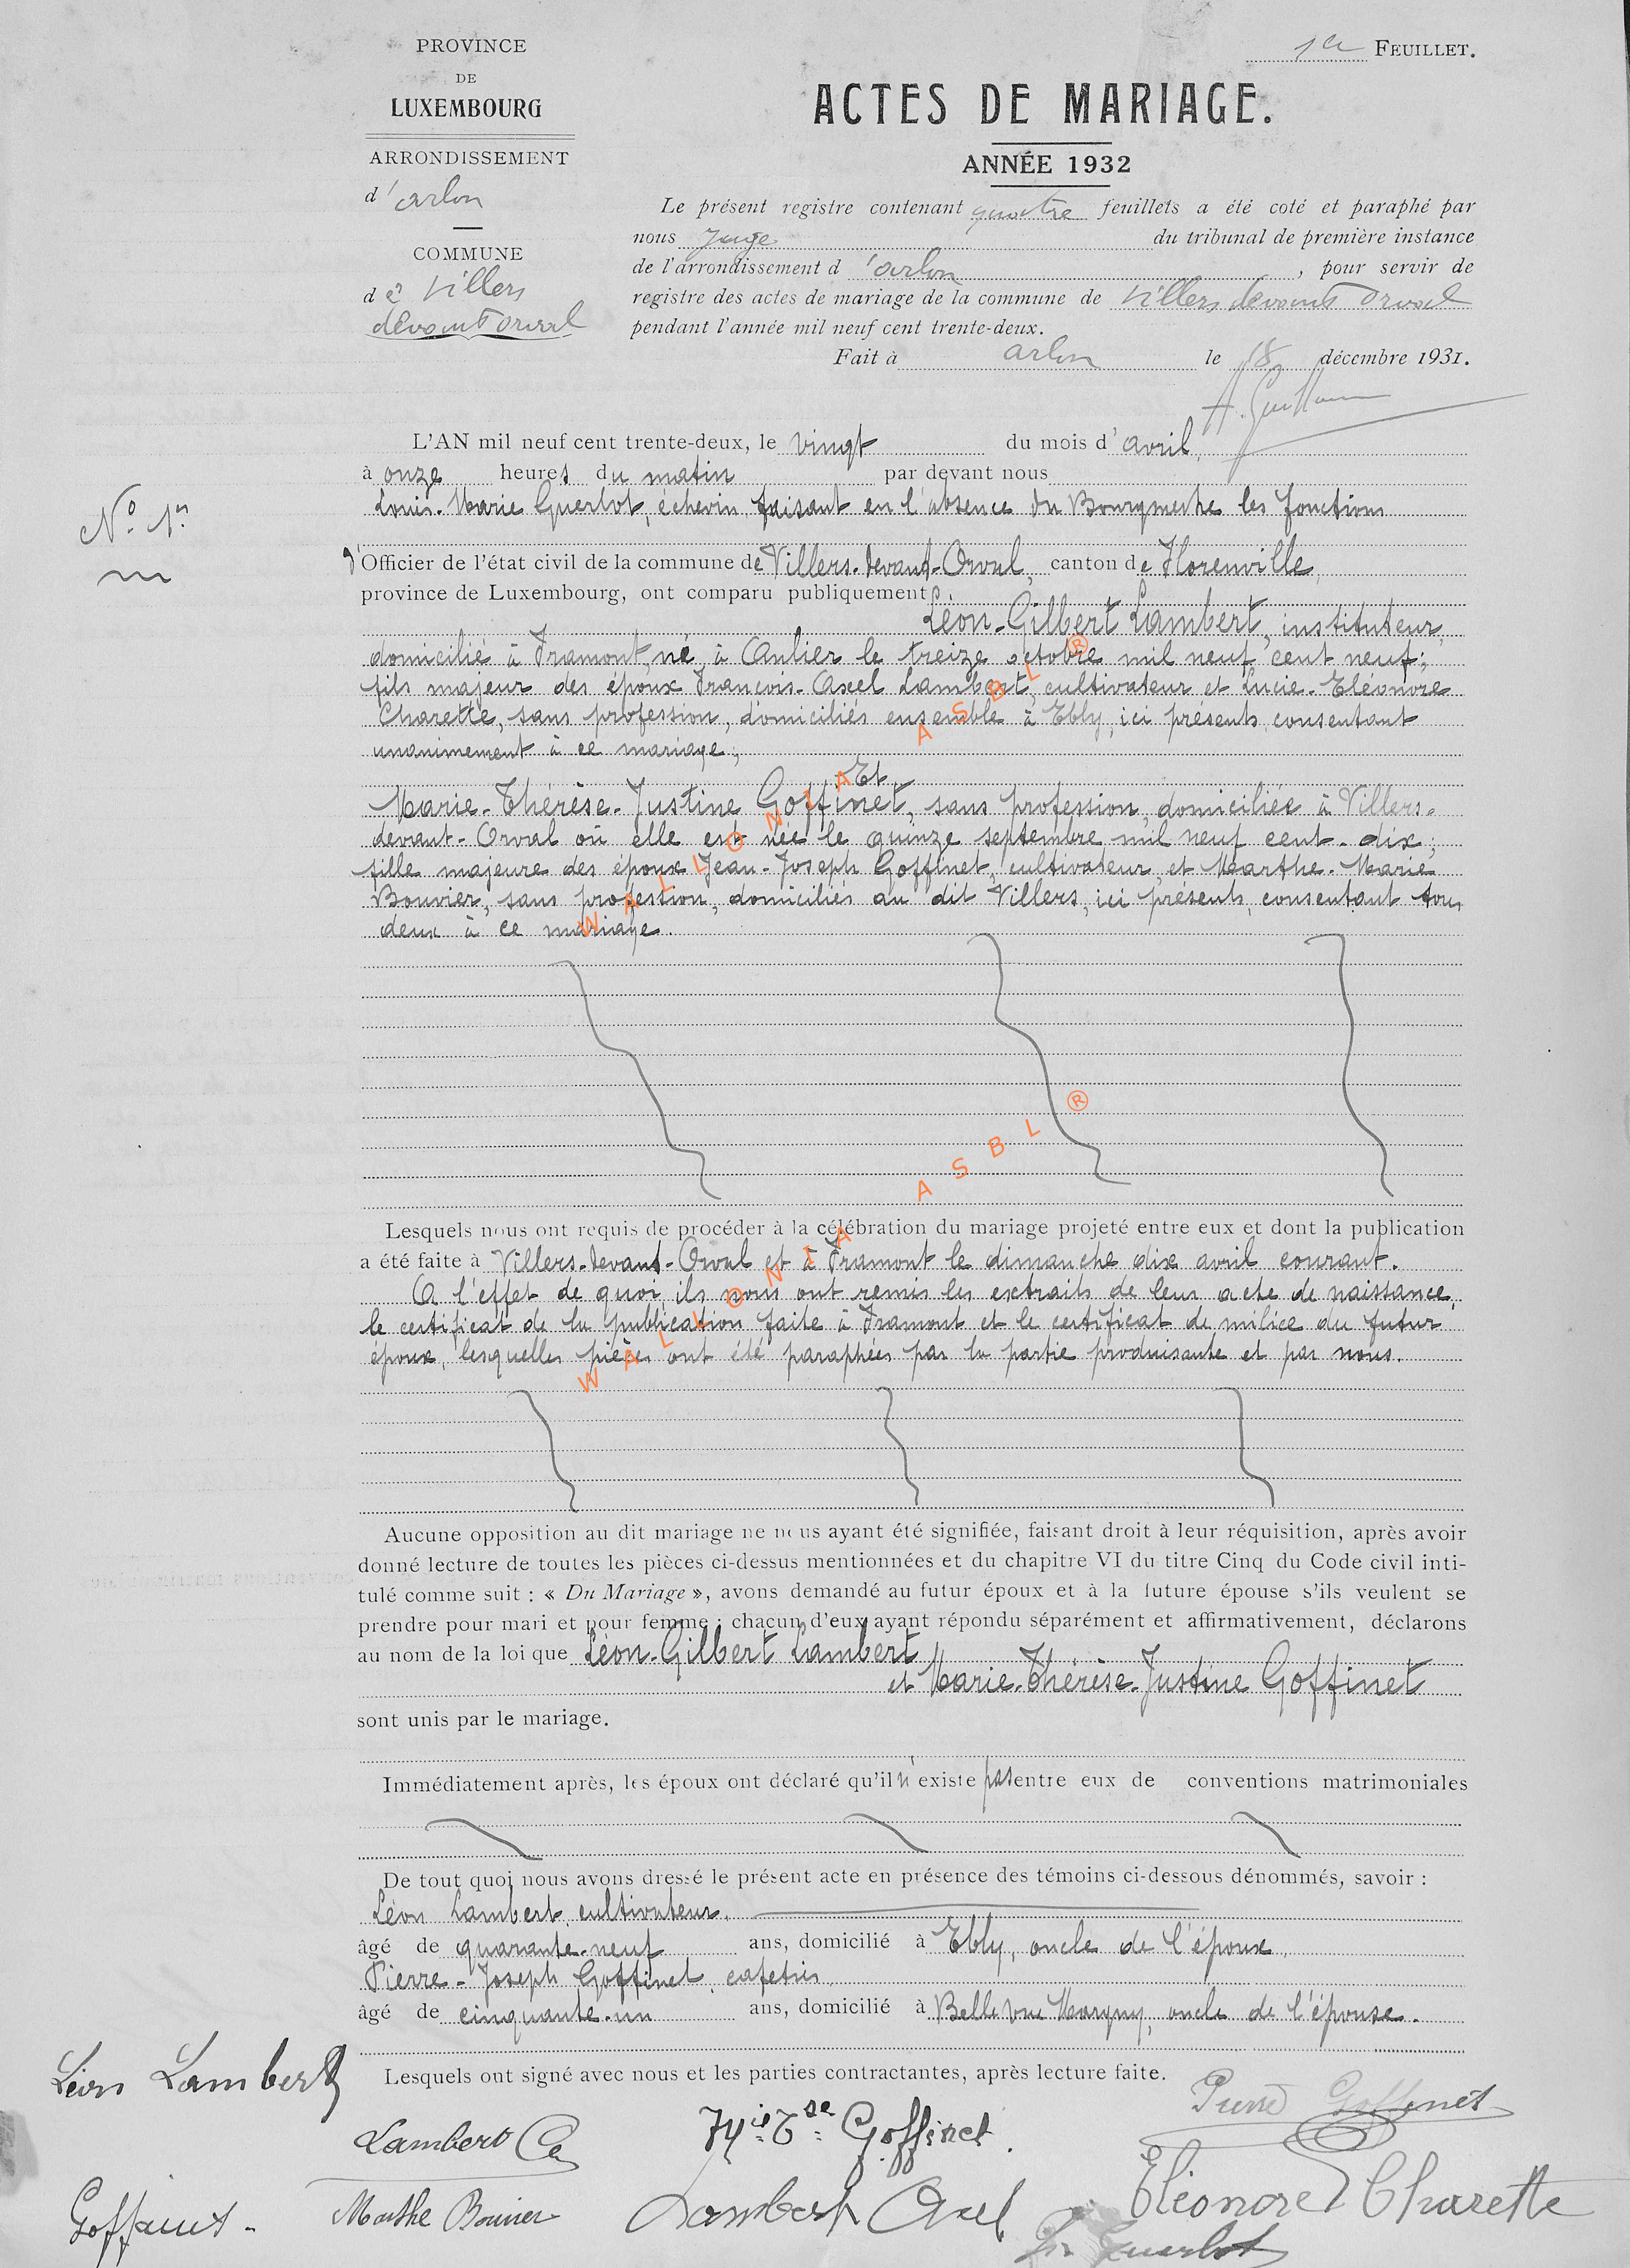 PROVINCE
DE
LUXEMBOURG
ARRONDISSEMENT
d'arlon
COMMUNE
de Villers
devant Orval
1er FEUILLET.
ACTES DE MARIAGE.
ANNÉE 1932
Le présent registre contenant quatre feuillets a été coté et paraphé par
nous Juge du tribunal de première instance
de l'arrondissement d'arlon, pour servir de
registre des actes de mariage de la commune de Villers devant Orval
pendant l'année mil neuf cent trente-deux.
Fait à arlon le 18 décembre 1931.
N° 1er
L'AN mil neuf cent trente-deux, le vingt du mois d'avril,
à onze heures du matin par devant nous
Louis-Marie Guerlot, échevin faisant en l'absence du Bourgmestre les fonctions
d'Officier de l'état civil de la commune de Villers-devant-Orval, canton de Florenville,
province de Luxembourg, ont comparu publiquement :
Léon-Gilbert Lambert, instituteur,
domicilié à Framont, né à Anlier le treize octobre mil neuf cent neuf;
fils majeur des époux François-Axel Lambert, cultivateur et Lucie-Eléonore
Charette, sans profession, domiciliés ensemble à Ebly, ici présents, consentant
unanimement à ce mariage;
Et
Marie-Thérèse-Justine Goffinet, sans profession, domiciliée à Villers-
devant-Orval où elle est née le quinze septembre mil neuf cent-dix;
fille majeure des époux Jean-Joseph Goffinet, cultivateur, et Marthe-Marie
Bouvier, sans profession, domiciliés au dit Villers, ici présents, consentant tous
deux à ce mariage.
WALLONIA ASBL ®
Lesquels nous ont requis de procéder à la célébration du mariage projeté entre eux et dont la publication
a été faite à Villers-devant-Orval et à Framont le dimanche dix avril courant.
A l'effet de quoi ils nous ont remis les extraits de leur acte de naissance,
le certificat de la publication faite à Framont et le certificat de milice du futur
époux, lesquelles pièces ont été paraphées par la partie produisante et par nous.
WALLONIA ASBL ®
Aucune opposition au dit mariage ne nous ayant été signifiée, faisant droit à leur réquisition, après avoir
donné lecture de toutes les pièces ci-dessus mentionnées et du chapitre VI du titre Cinq du Code civil inti-
tulé comme suit : « Du Mariage », avons demandé au futur époux et à la future épouse s'ils veulent se
prendre pour mari et pour femme ; chacun d'eux ayant répondu séparément et affirmativement, déclarons
au nom de la loi que Léon-Gilbert Lambert
et Marie-Thérèse-Justine Goffinet
sont unis par le mariage.
Immédiatement après, les époux ont déclaré qu'il n'existe pas entre eux de conventions matrimoniales
De tout quoi nous avons dressé le présent acte en présence des témoins ci-dessous dénommés, savoir :
Léon Lambert, cultivateur,
âgé de quarante-neuf ans, domicilié à Ebly, oncle de l'époux,
Pierre-Joseph Goffinet, cafetier
âgé de cinquante-un ans, domicilié à Belle Vue Margny, oncle de l'épouse.
Lesquels ont signé avec nous et les parties contractantes, après lecture faite.
Léon Lambert
Pierre Goffinet
Lambert
Mie Tse Goffinet
Goffinet
Marthe Bouvier
Lambert Axel
Eléonore Charette
Guerlot